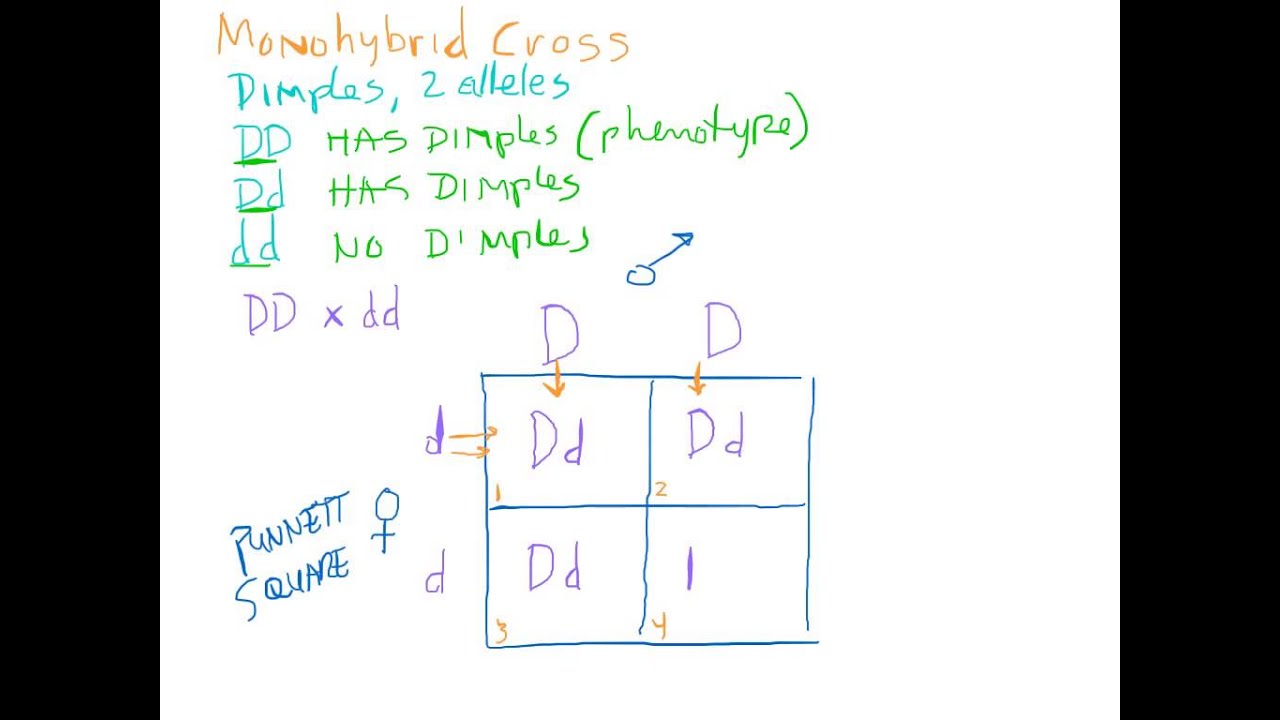 Monohybrid Cross
Dimples, 2 alleles
DD HAS DIMPLES (phenotype)
Dd HAS DIMPLES
dd NO DIMPLES
DD x dd
D D
d Dd Dd
1 2
PUNNETT
SQUARE
d Dd
3 4